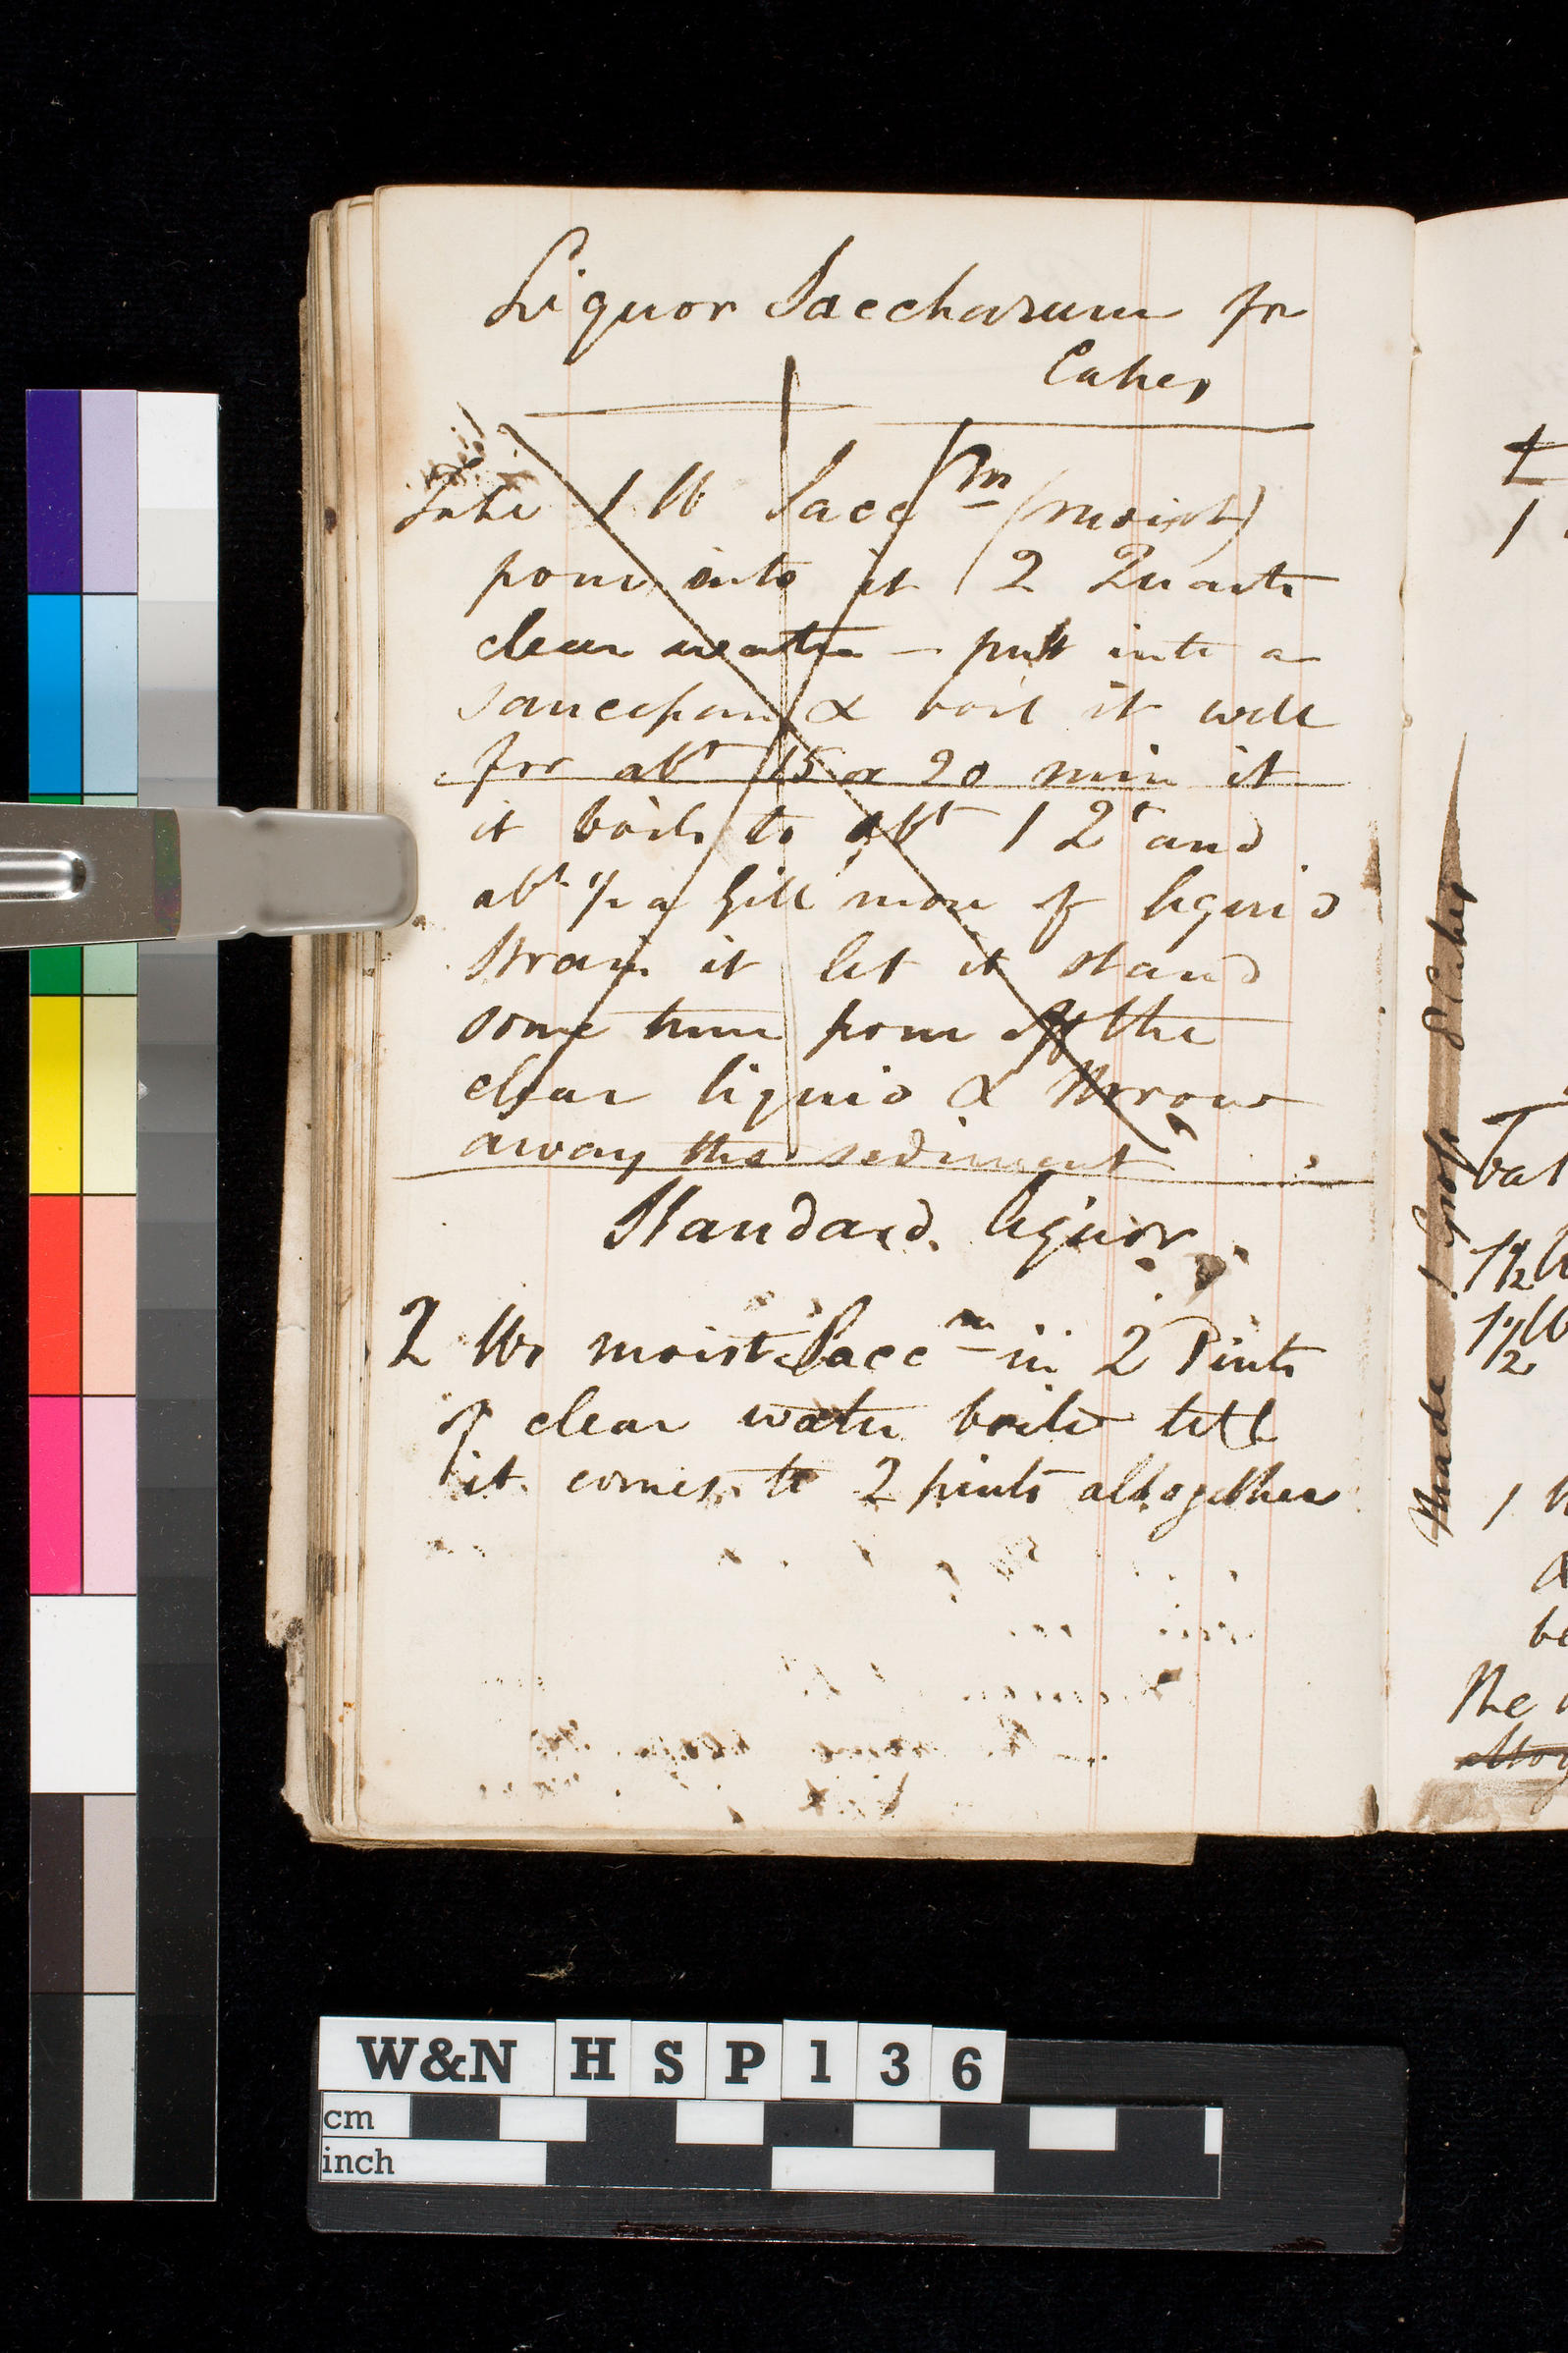 Liquor Saccharum fr
Cakes
Take 1 lb Sacc<sup>m</sup> (moist)
pour into it 2 Quarts
clear water – put into a
saucepan & boil it well
for ab<sup>t</sup> 15 or 20 min it
it boils to ab<sup>t</sup> 1 Q<sup>t</sup> and
ab<sup>t</sup> 1/2 a Gill more of liquid
Strain it let it stand
some time pour off the
clear liquid & throw
away the sediment
Standard liquor
2 lbs moist Sacc<sup>m</sup> in 2 Pints
of clear water boiled till
it comes to 2 pints altogether
Made 1 Gross Cakes
1
1 1/2 lb
1 1/2 lb
1
&
be
The
W&N HSP136
cm
inch